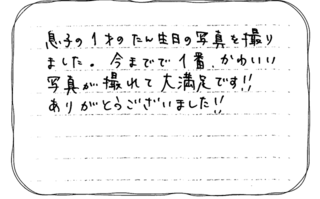 息子の1才のたん生日の写真を撮り
ました。今までで1番、かわいい
写真が撮れて大満足です!!
ありがとうございました!!